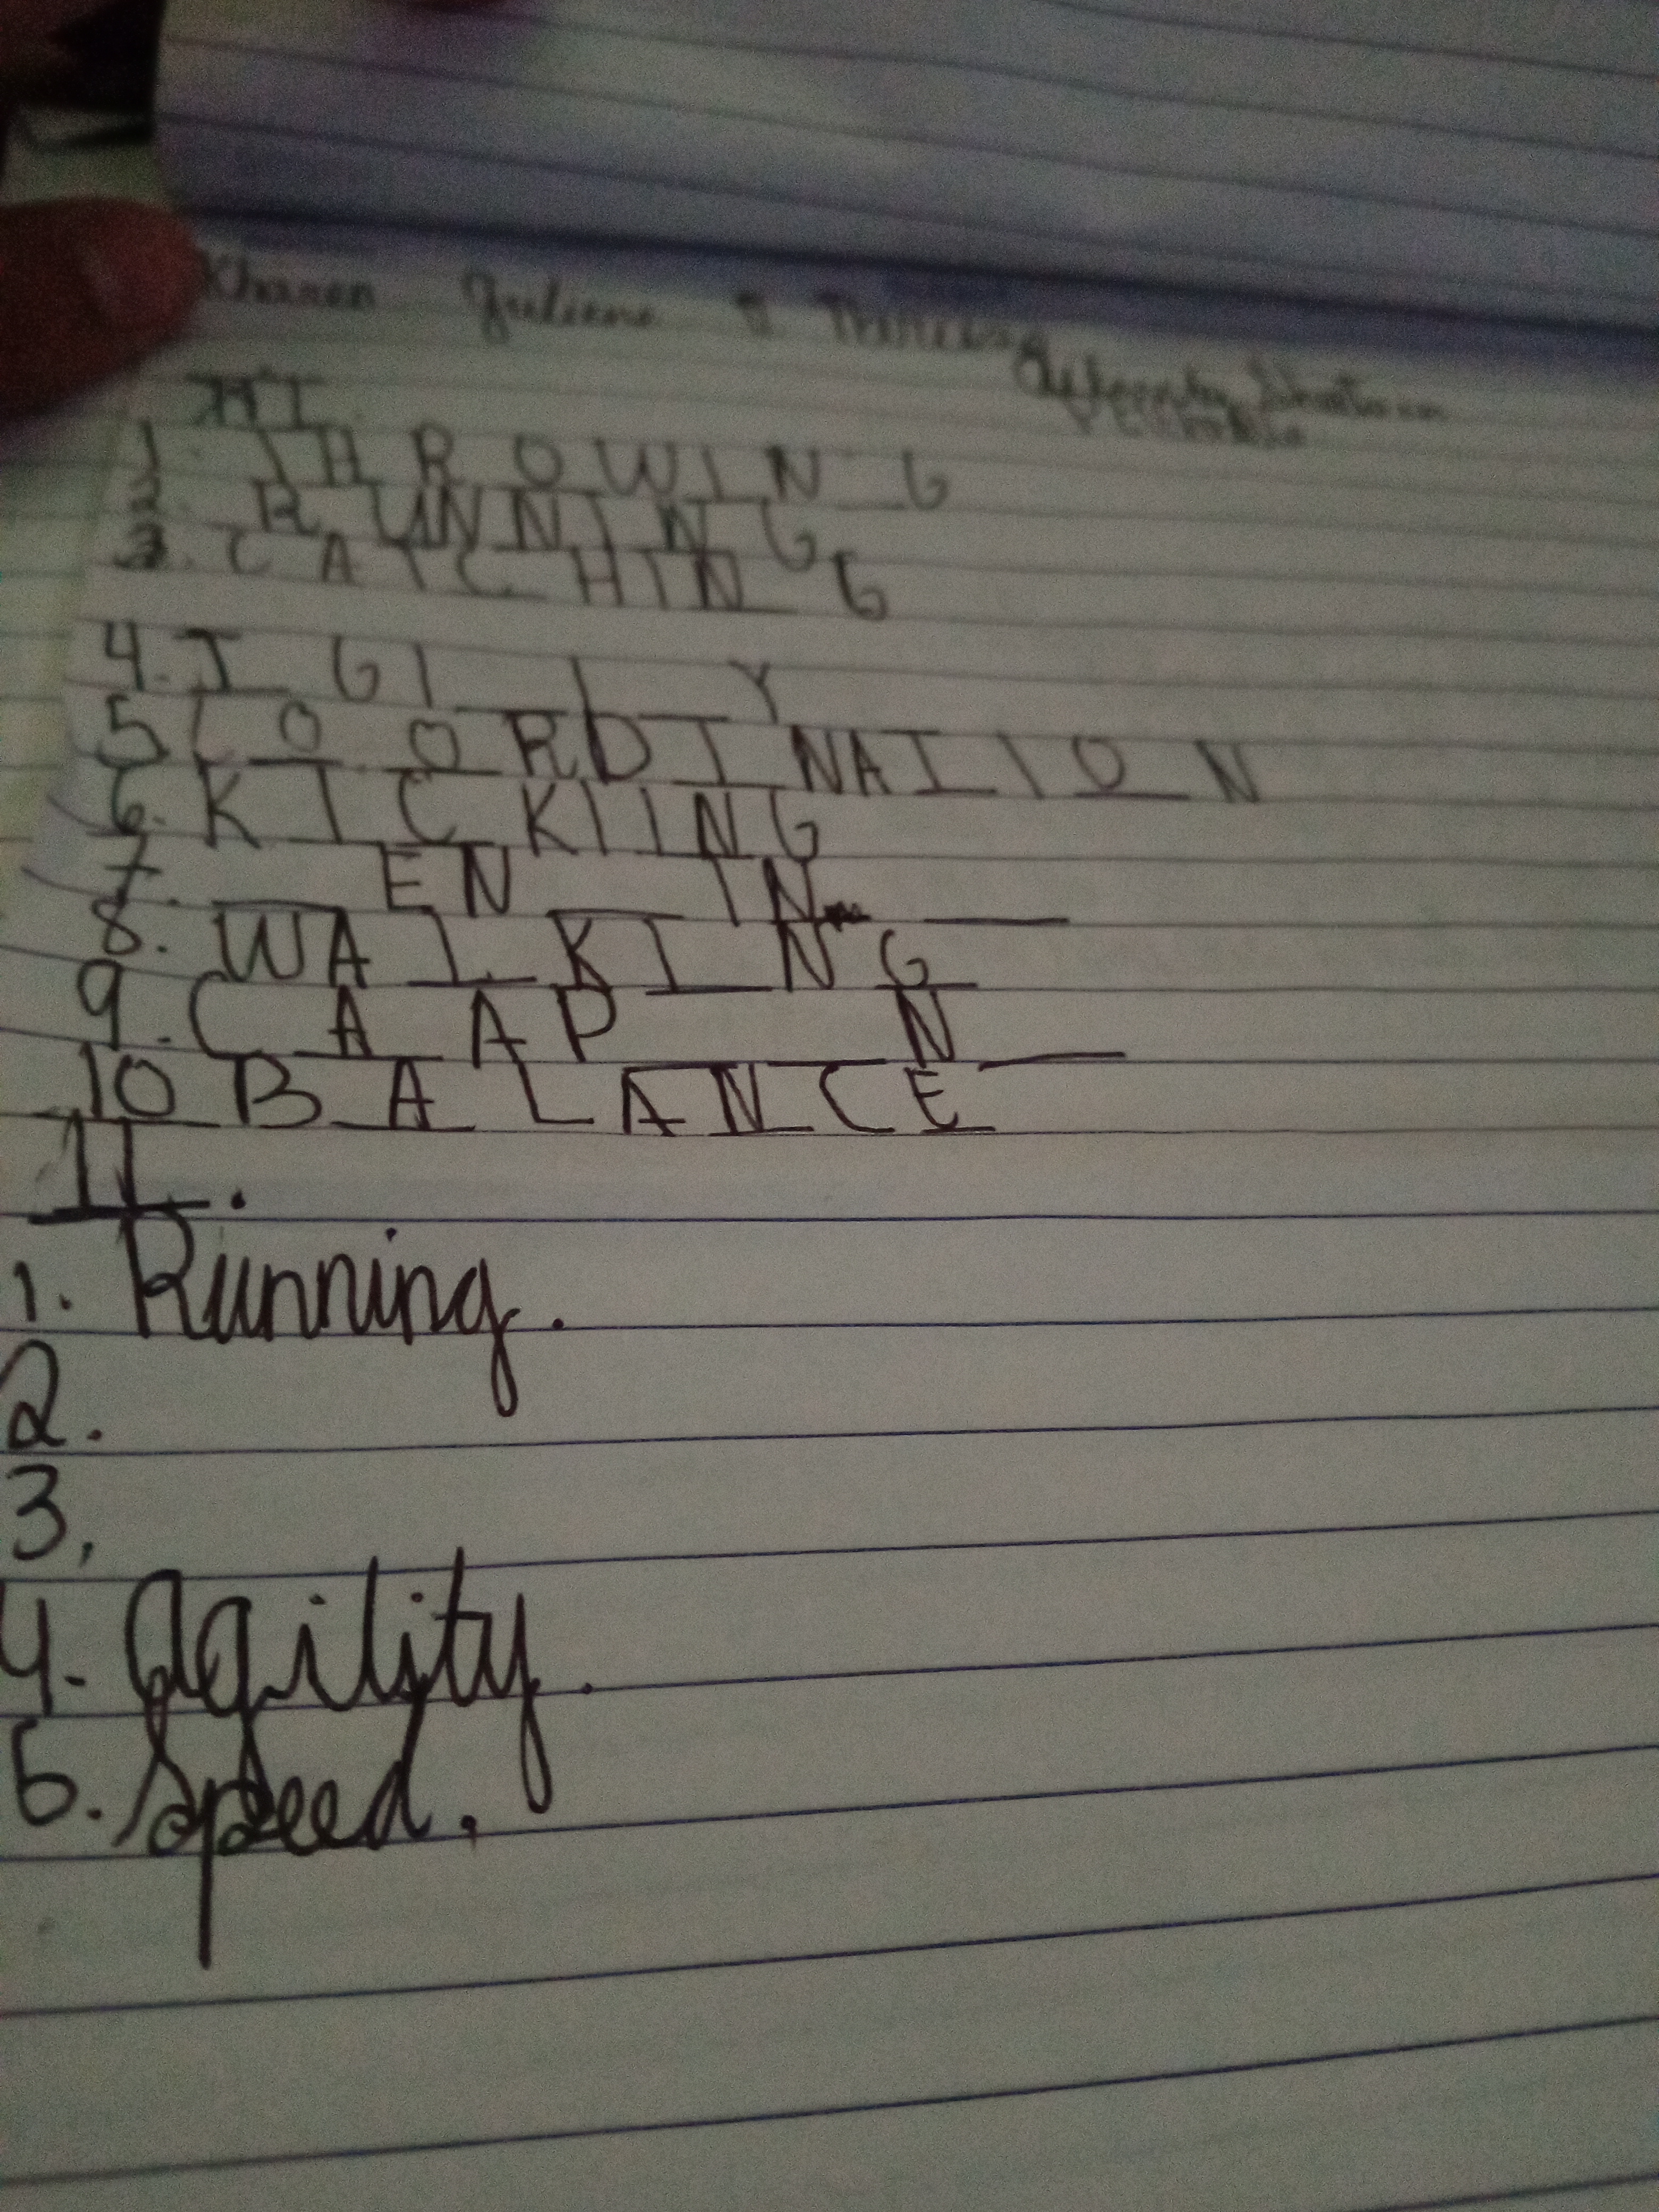 Kharen
I.
1. THROWING
2. RUNNING
3. CATCHING
4. I GI _ I _ Y
5 COORDINATION
6. KICKIING
7. _ EN _ IN _
8. WALKING
9. CA_AP _ _ N _
10 BALANCE
II.
1. Running.
2.
3,
4. Agility.
5. Speed.